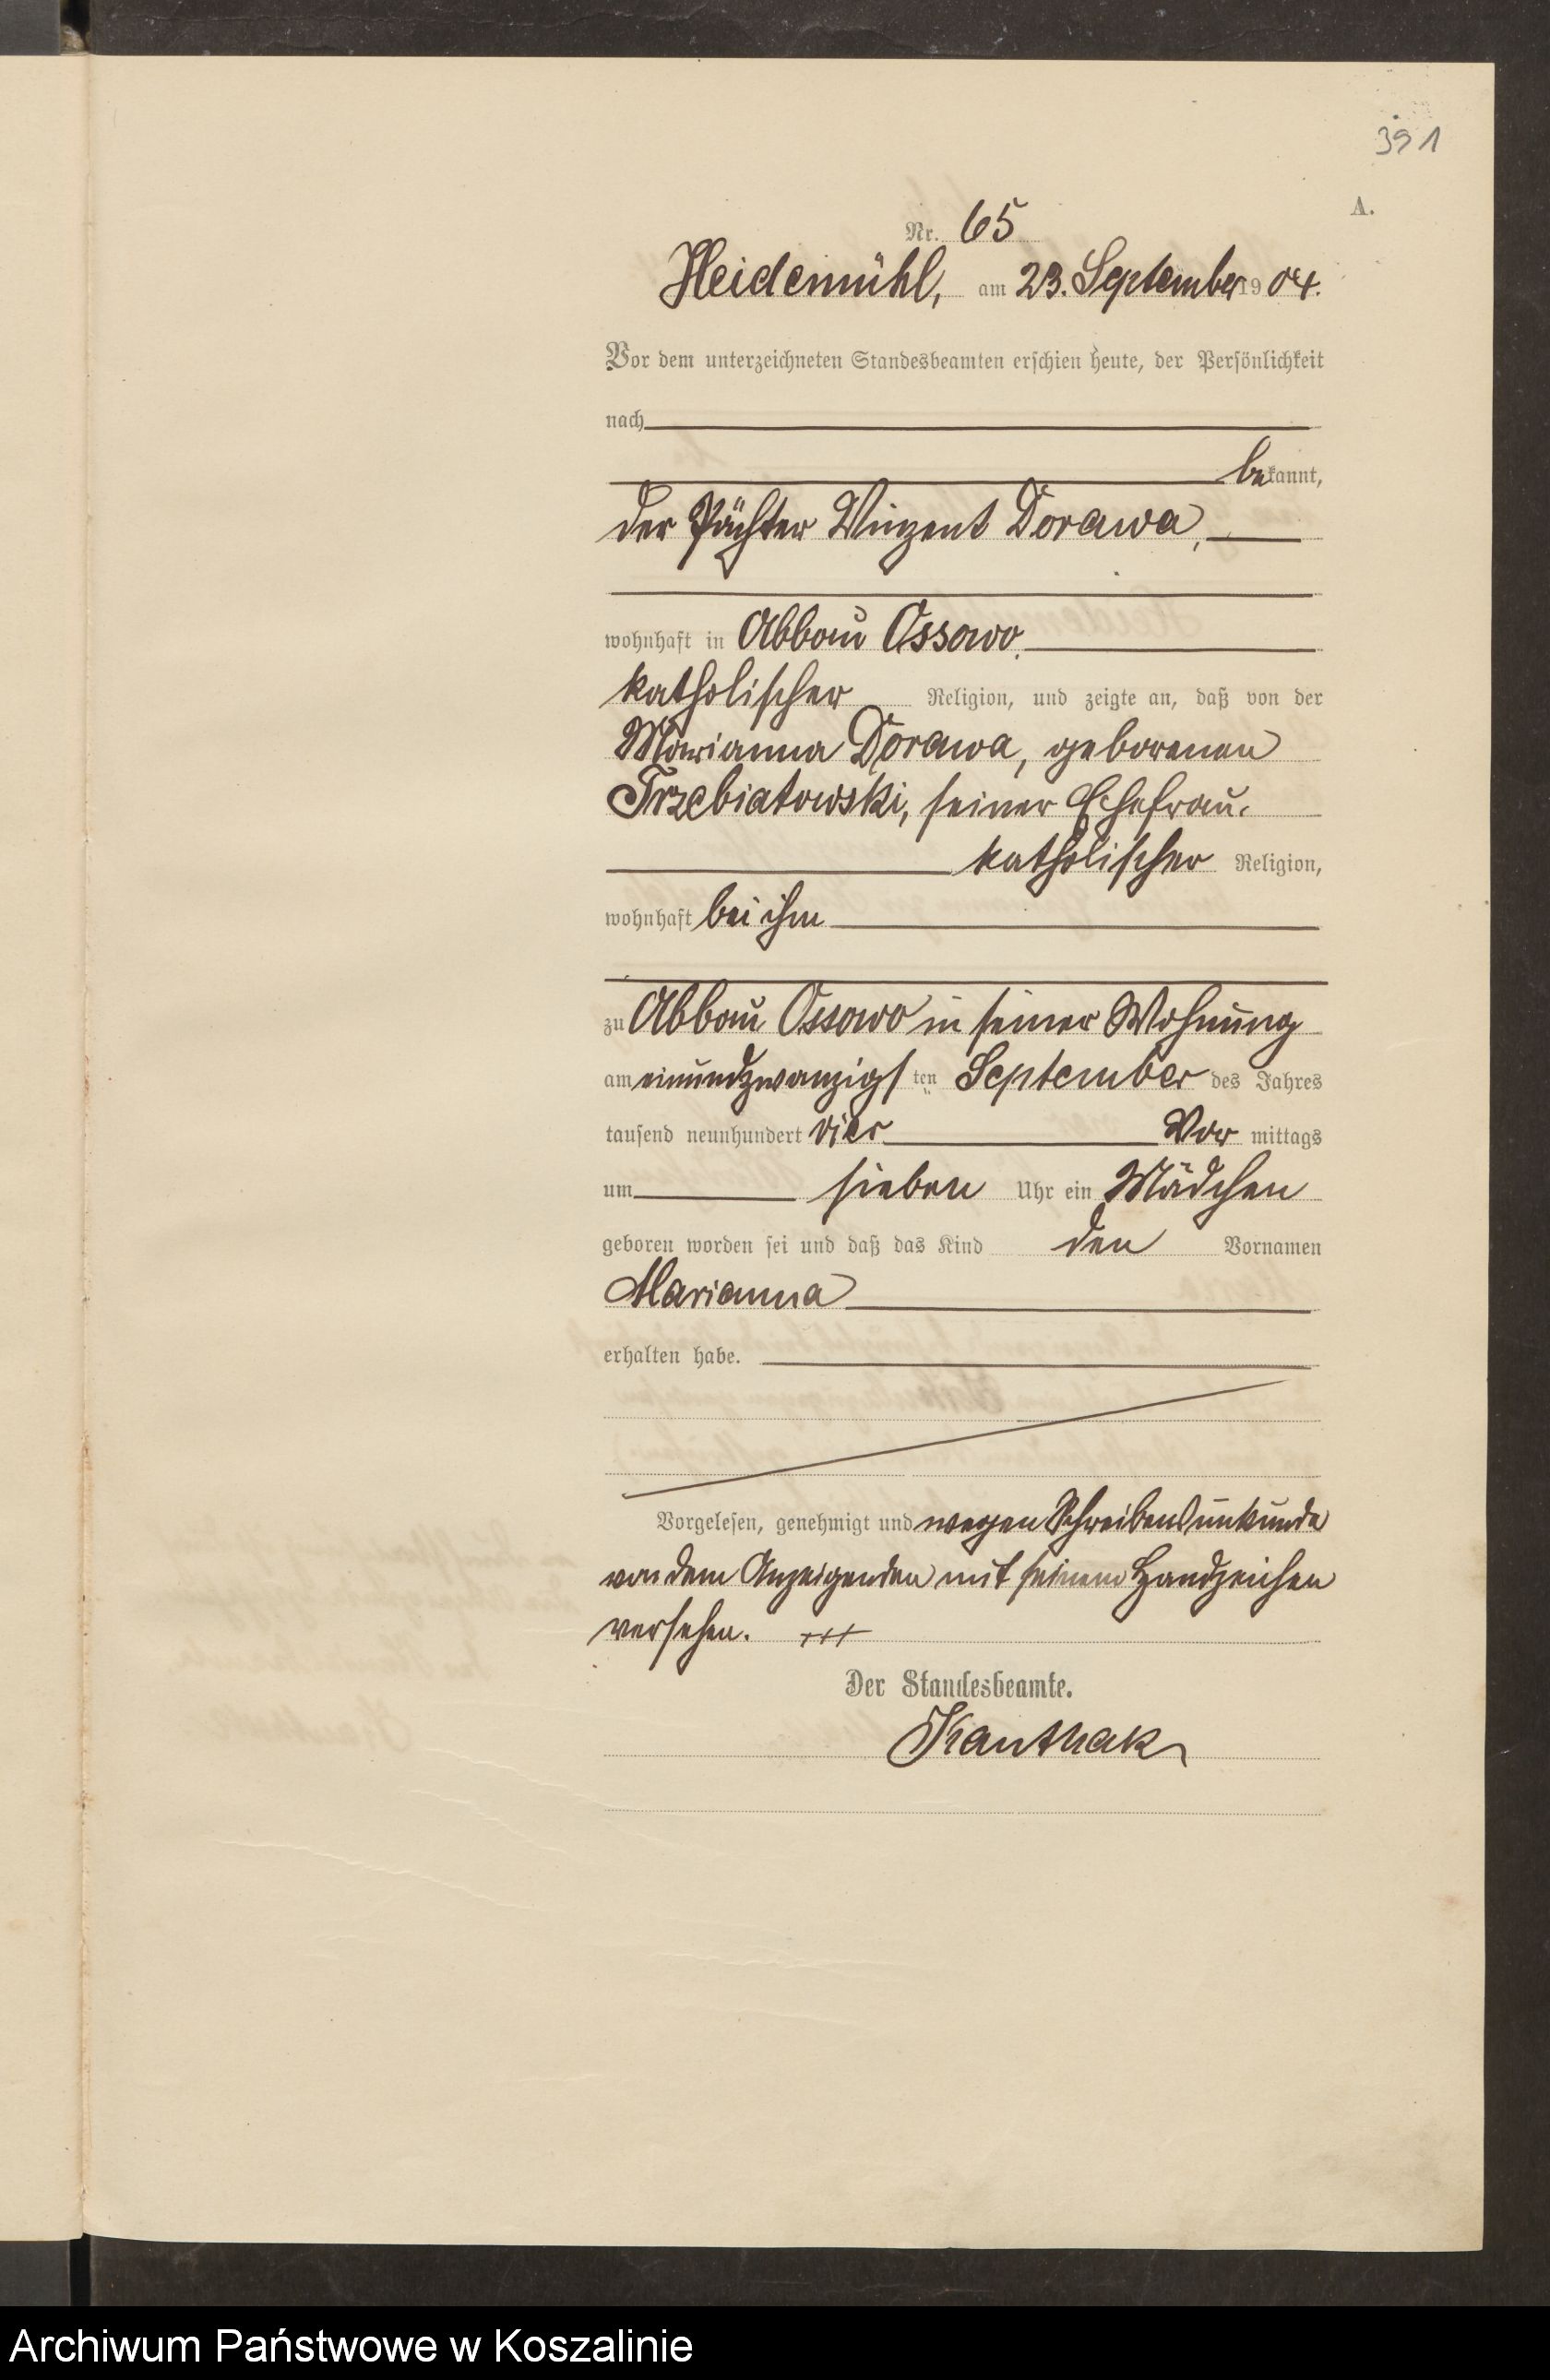 391
A.
Nr. 65
Heidemühl, am 23. September 1904.
Vor dem unterzeichneten Standesbeamten erschien heute, der Persönlichkeit
nach
bekannt,
der Pächter Vinzent Dorawa,
wohnhaft in Abbau Ossowo,
katholischer Religion, und zeigte an, daß von der
Marianna Dorawa, geborenen
Trzebiatowski, seiner Ehefrau,
katholischer Religion,
wohnhaft bei ihm
zu Abbau Ossowo in seiner Wohnung
am einundzwanzigsten September des Jahres
tausend neunhundert vier Vormittags
um sieben Uhr ein Mädchen
geboren worden sei und daß das Kind den Vornamen
Marianna
erhalten habe.
Vorgelesen, genehmigt und wegen Schreibensunkunde
von dem Anzeigenden mit seinem Handzeichen
versehen. +++
Der Standesbeamte.
Kanthak
Archiwum Państwowe w Koszalinie